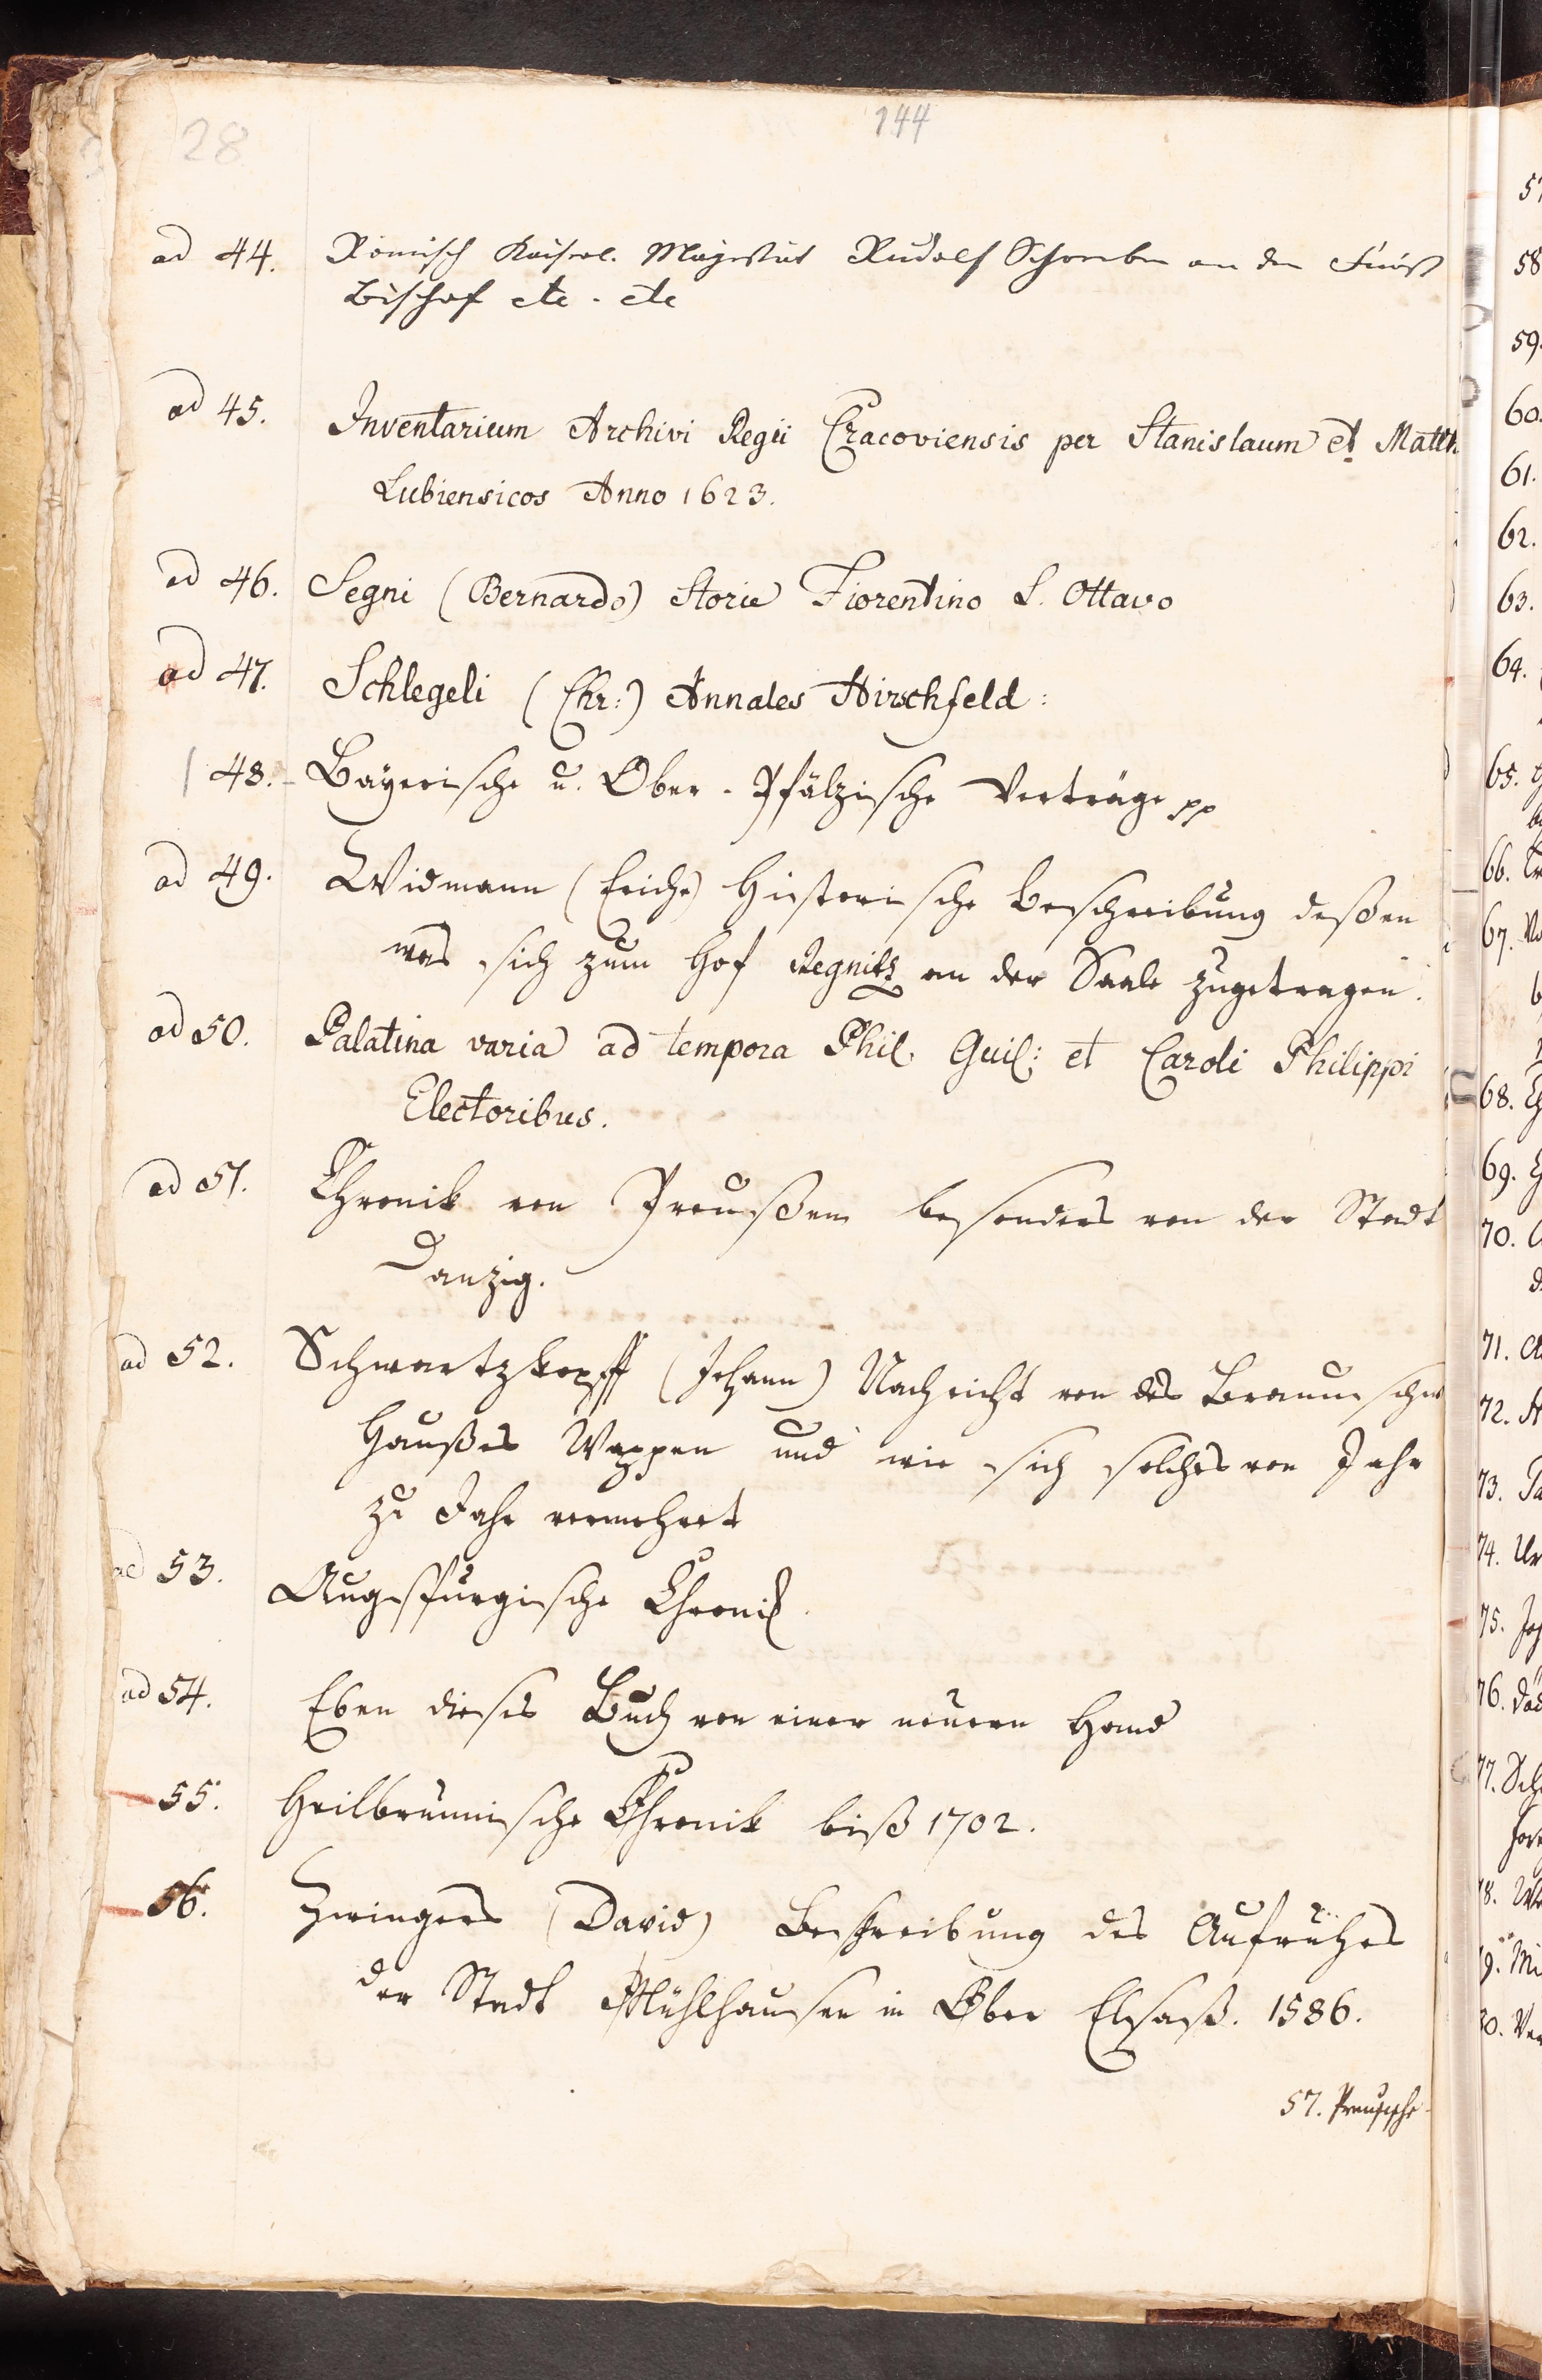 28
144
ad 44. Römisch Kaiserl. Majestät Rudolf Schreiben an den Fürst
Bischof etc. etc
ad 45. Inventarium Archivi Regii Cracoviensis per Stanislaum et Matth
Lubiensicos Anno 1623.
ad 46. Segni (Bernardo) Storie Fiorentino L. Ottavo
ad 47. Schlegeli (Chr:) Annales Hirschfeld:
48. Bayerische u. Ober-Pfälzische Verträge pp
ad 49. Widmann (Erich) Historische Beschreibung deßen
was sich zum Hof Regnitz an der Saale zugetragen.
ad 50. Palatina varia ad tempora Phil. Guil: et Caroli Philippi
Electoribus.
ad 51. Chronik von Preußen besonders von der Stadt
Danzig.
ad 52. Schwartzkopff (Johann) Nachricht von des Braunschw
Haußes Wappen und wie sich solches von Jahr
zu Jahr vermehret
ad 53. Augspurgische Chronik.
ad 54. Eben dieses Buch von einer neuern Hand
55. Heilbrunnische Chronik biß 1702.
56. Zwingers (David) Beschreibung des Aufruhrs
der Stadt Mühlhausen in Ober Elsaß. 1586.
57. Preusische
57
58
59.
60.
61.
62.
63.
64.
65.
66.
67.
68.
69.
70.
71.
72.
73.
74.
75.
76.
77.